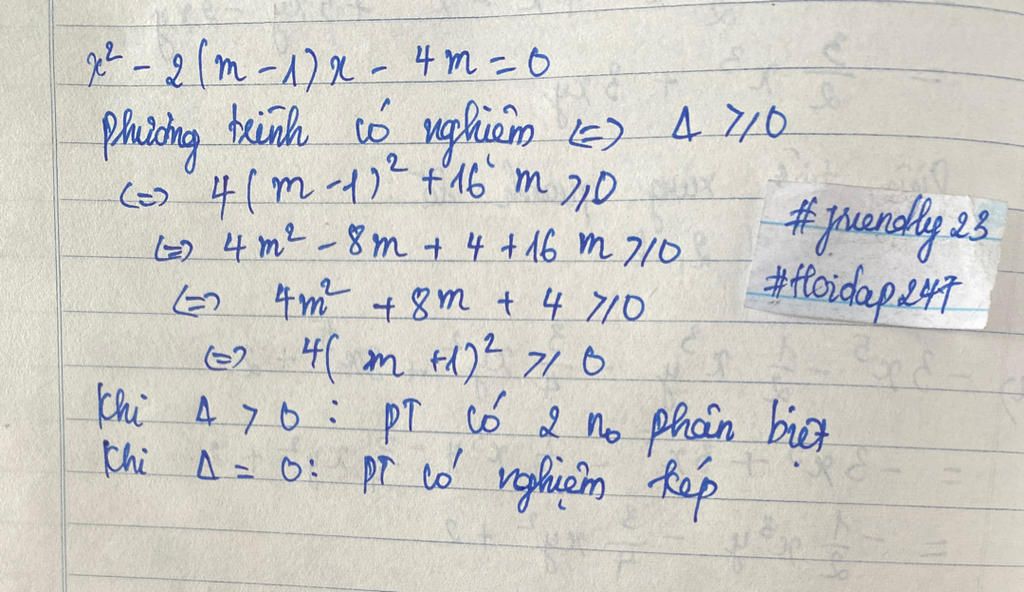 x² - 2(m - 1)x - 4m = 0
phương trình có nghiệm <=> Δ ≥ 0
<=> 4(m - 1)² + 16 m ≥ 0
<=> 4m² - 8m + 4 + 16 m ≥ 0
<=> 4m² + 8m + 4 ≥ 0
<=> 4(m + 1)² ≥ 0
Khi Δ > 0 : PT có 2 no phân biệt
Khi Δ = 0 : PT có nghiệm kép
#friendly23
#Hoidap247